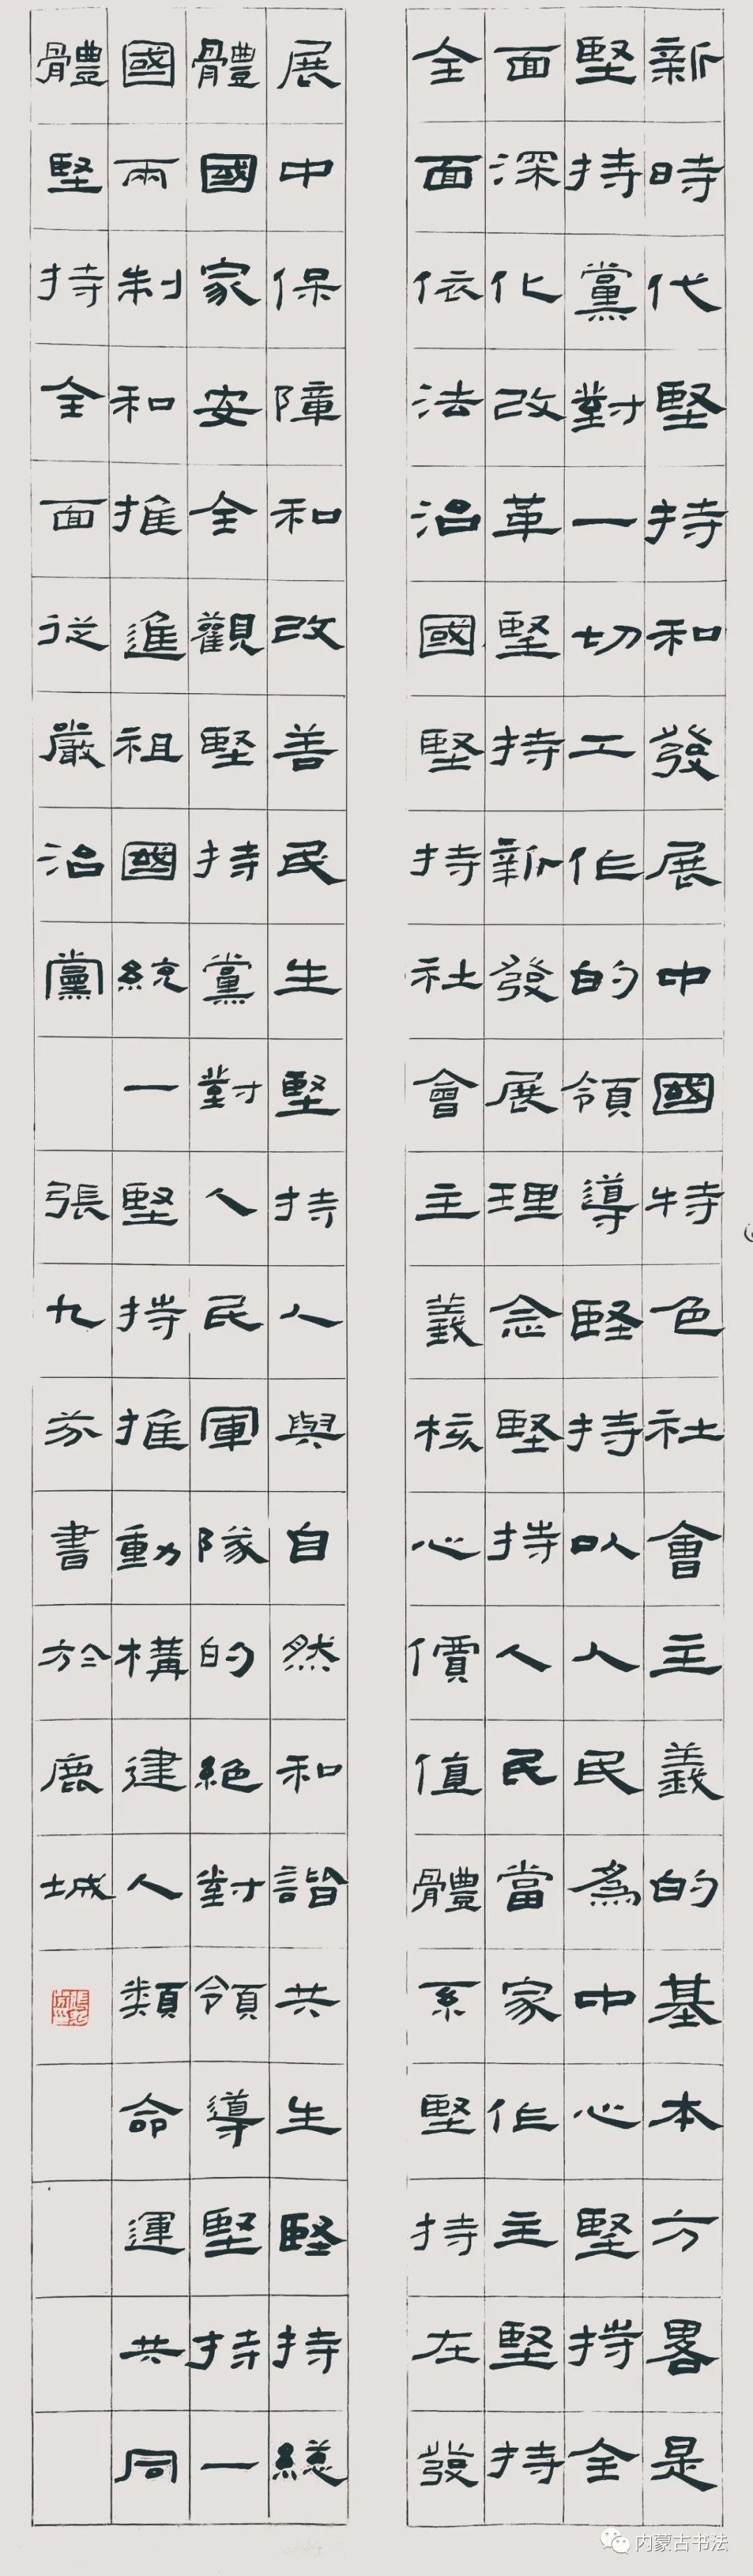 新時代堅持和發展中國特色社會主義的基本方畧是
堅持黨對一切工作的領導堅持以人民為中心堅持全
面深化改革堅持新發展理念堅持人民當家作主堅持
全面依法治國堅持社會主義核心價值體系堅持在發
展中保障和改善民生堅持人與自然和諧共生堅持總
體國家安全觀堅持黨對人民軍隊的絕對領導堅持一
國兩制和推進祖國統一堅持推動構建人類命運共同
體堅持全面從嚴治黨 張九書於鹿城
内蒙古书法